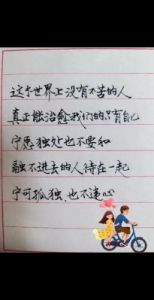 这个世界上没有不苦的人
真正能治愈我们的只有自己
宁愿独处也不要和
融不进去的人待在一起
宁可孤独，也不违心